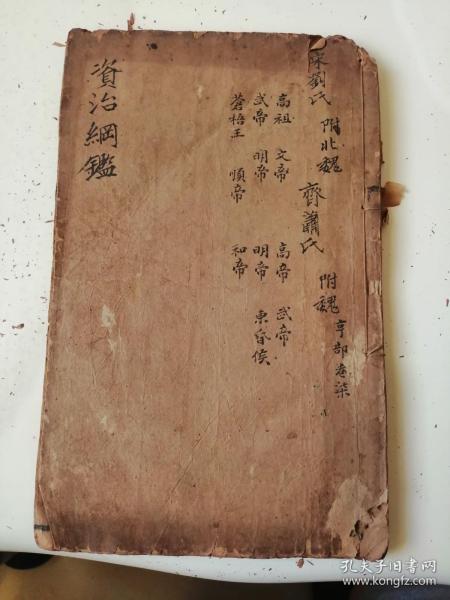 宋劉氏 附北魏 齊蕭氏 附魏 亨部卷柒
高祖 文帝 高帝 武帝
武帝 明帝 明帝 東昏侯
蒼梧王 順帝 和帝
資治綱鑑
孔夫子旧书网
www.kongfz.com